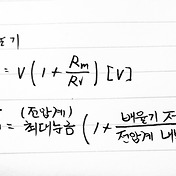 기
= V ( 1 + Rm/Rv ) [V]
(전압계)
= 최대눈금 ( 1 + 배율기 저/전압계 내